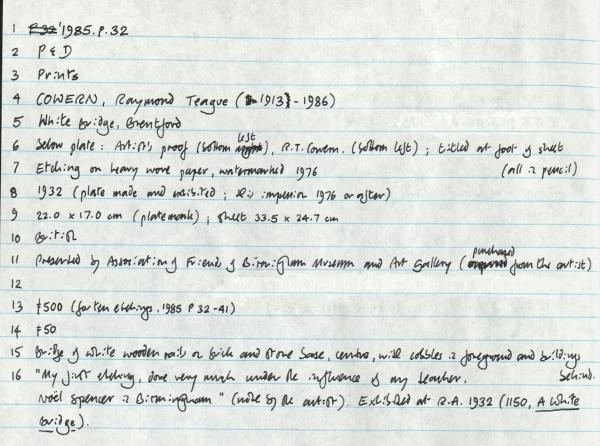 1 P32' 1985.P.32
2 P & D
3 Prints
4 COWERN, Raymond Teague (1913 - 1986)
5 White Bridge, Brentford
6 below plate: Artist's proof (bottom left), R.T. Cowern. (bottom left); titled at foot of sheet
7 Etching on heavy wove paper, watermarked 1976 (all in pencil)
8 1932 (plate made and exhibited; this impression 1976 or after)
9 22.0 x 17.0 cm (platemark); sheet 33.5 x 24.7 cm
10 British
11 Presented by Association of Friends of Birmingham Museum and Art Gallery (purchased from the artist)
12
13 £500 (for ten etchings, 1985 P 32-41)
14 £50
15 Bridge of white wooden rails on brick and stone base, centre, with cobbles in foreground and buildings behind.
16 "My first etching, done very much under the influence of my teacher.
Noël Spencer in Birmingham" (note by the artist). Exhibited at R.A. 1932 (1150, A White
Bridge).